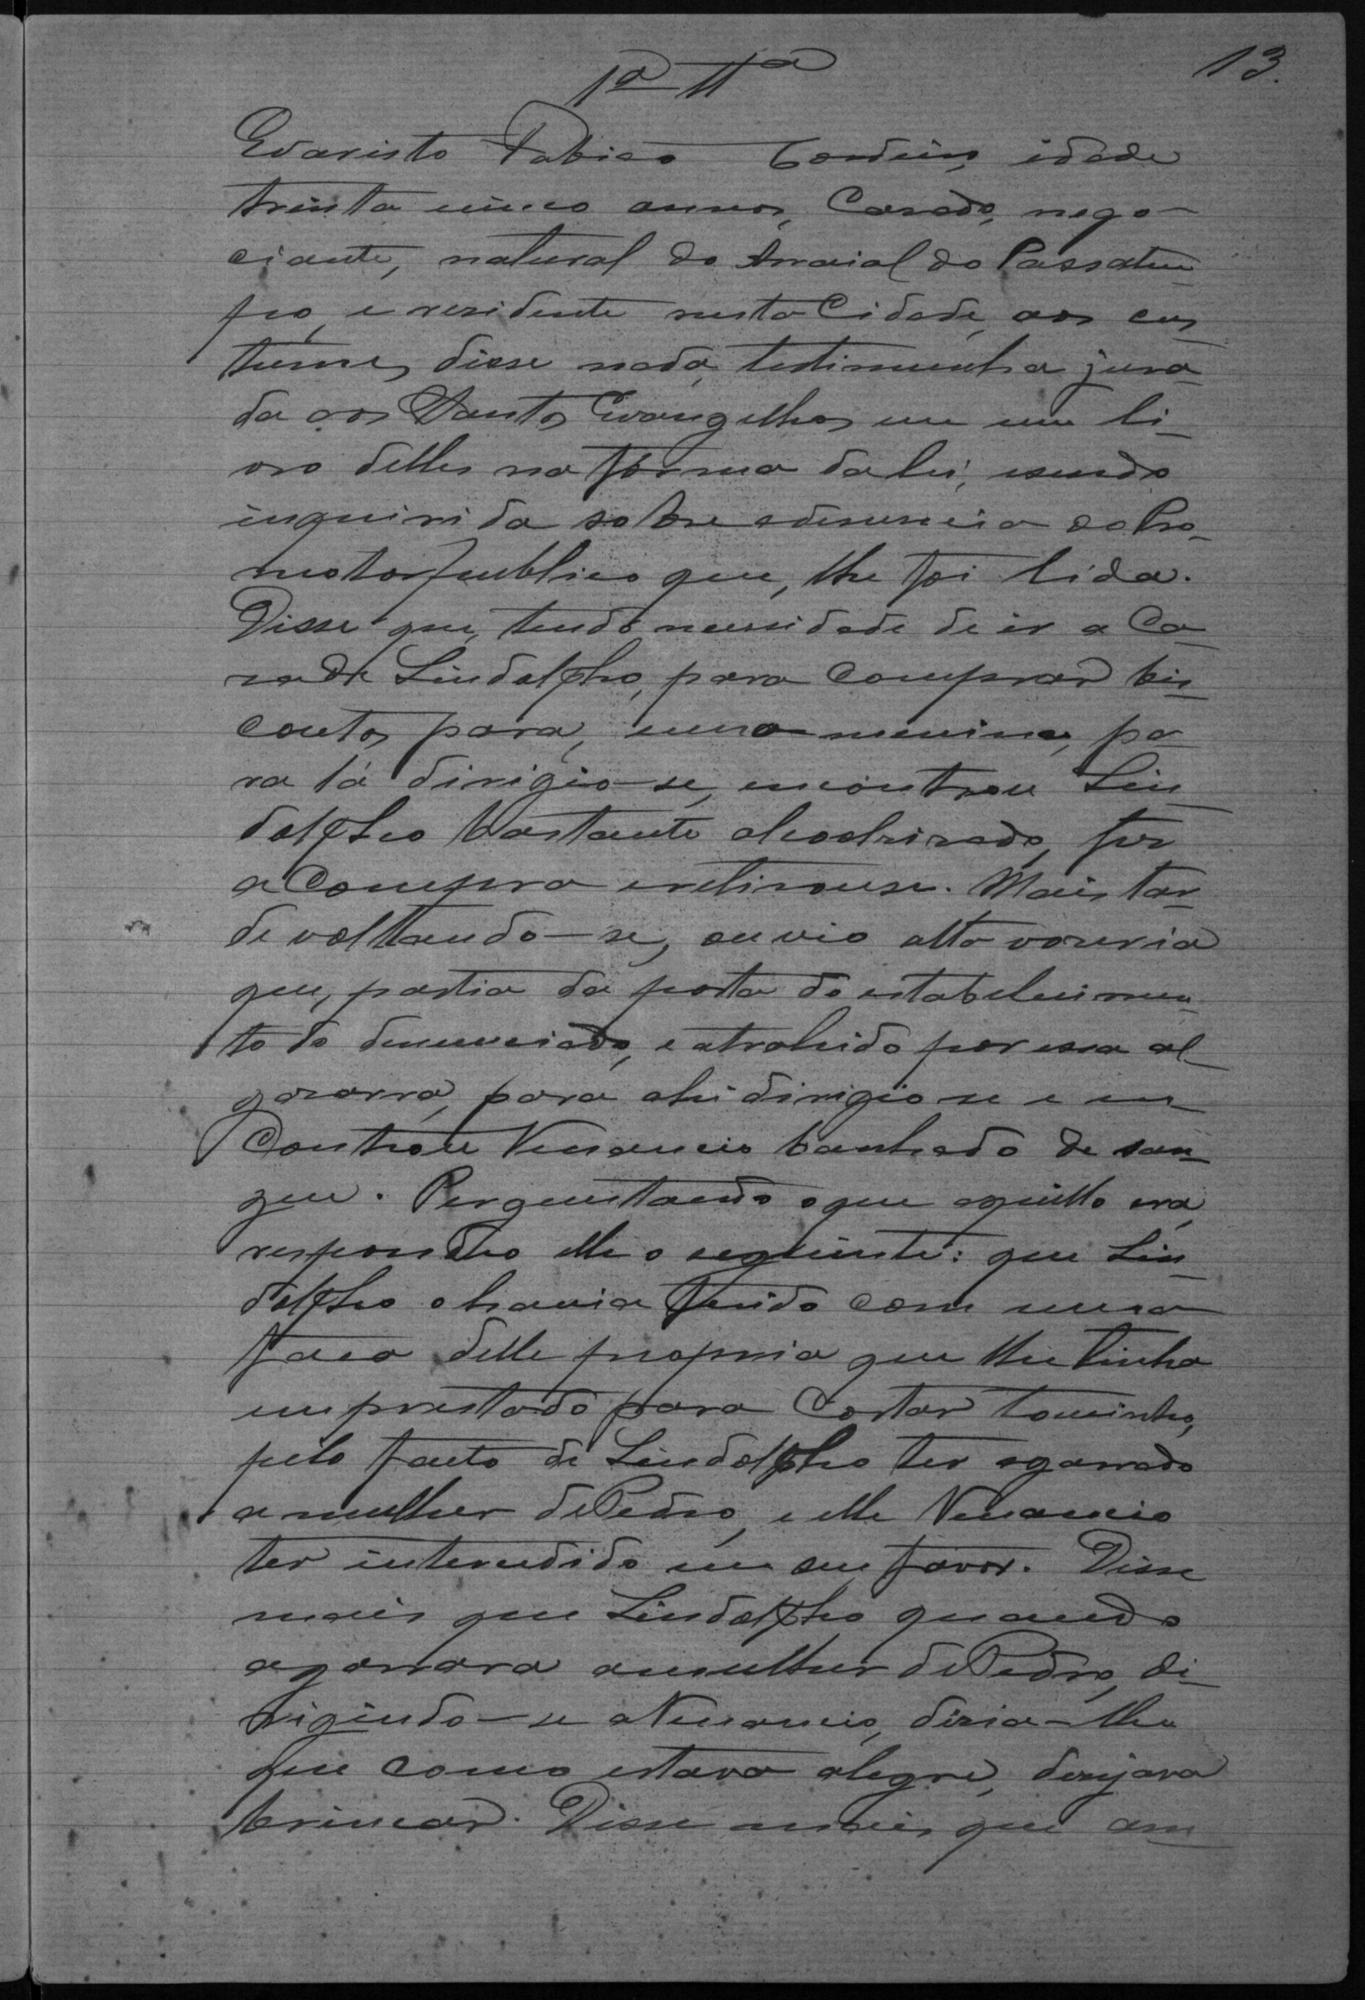 13.
1ª Tª
Evaristo Fabiao Cordeiro, idade
trinta cinco annos, Casado, nego-
ciante, natural do Arraial do Passatem
po, e residente nesta Cidade, aos cos
tumes disse nada, testimunha jura-
da aos Santos Evangelhos em um li-
vro delles na forma da lei, e sendo
inquirida sobre a denuncia do Pro-
motor publico que, lhe foi lida.
Disse que, tendo necessidade de ir a Ca-
sa de Lindolpho, para comprar bis-
coutos para, uma menina, pa
ra lá dirigio-se, encontrou Lin-
dolpho bastante alcoolisado, fez
a Compra e retirouse. Mais tar-
de voltando-se, ouvio alta vozeria
que, partia da porta do estabelecimen-
to do denunciado, e atrahido por essa al-
gazarra, para ahi dirigio se e en-
Controu Venancio banhado de san-
gue. Perguntando o que aquillo era,
respondeo elle o seguinte: que Lin-
dolpho o havia ferido com uma
faca delle propria que lhe tinha
emprestado para Cortar toucinho,
pelo facto de Lindolpho ter agarrado
a mulher de Pedro, e elle Venancio
ter intercedido em seu favor. Disse
mais que Lindolpho quando
agarrara a mulher de Pedro, di-
rigindo-se a Venancio, dizia-lhe
que como estava alegre, desejava
brincar. Disse mais que am